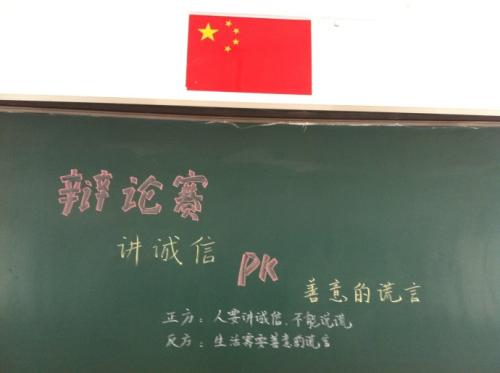 辩论赛
讲诚信
PK
善意的谎言
正方：人要讲诚信、不能说谎
反方：生活需要善意的谎言